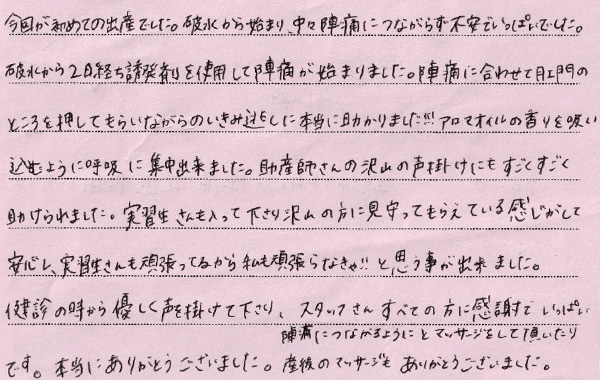 今回が初めての出産でした。破水から始まり、中々陣痛につながらず不安でいっぱいでした。
破水から2日経ち誘発剤を使用して陣痛が始まりました。陣痛に合わせて肛門の
ところを押してもらいながらのいきみ逃しに本当に助かりました!!! アロマオイルの香りを吸い
込むように呼吸に集中出来ました。助産師さんの沢山の声掛けにもすごくすごく
助けられました。実習生さんも入って下さり沢山の方に見守ってもらえている感じがして
安心し、実習生さんも頑張ってるから私も頑張らなきゃ!! と思う事が出来ました。
健診の時から優しく声を掛けて下さり、スタッフさんすべての方に感謝でいっぱい
陣痛につながるようにとマッサージをして頂いたり
です。本当にありがとうございました。産後のマッサージも ありがとうございました。